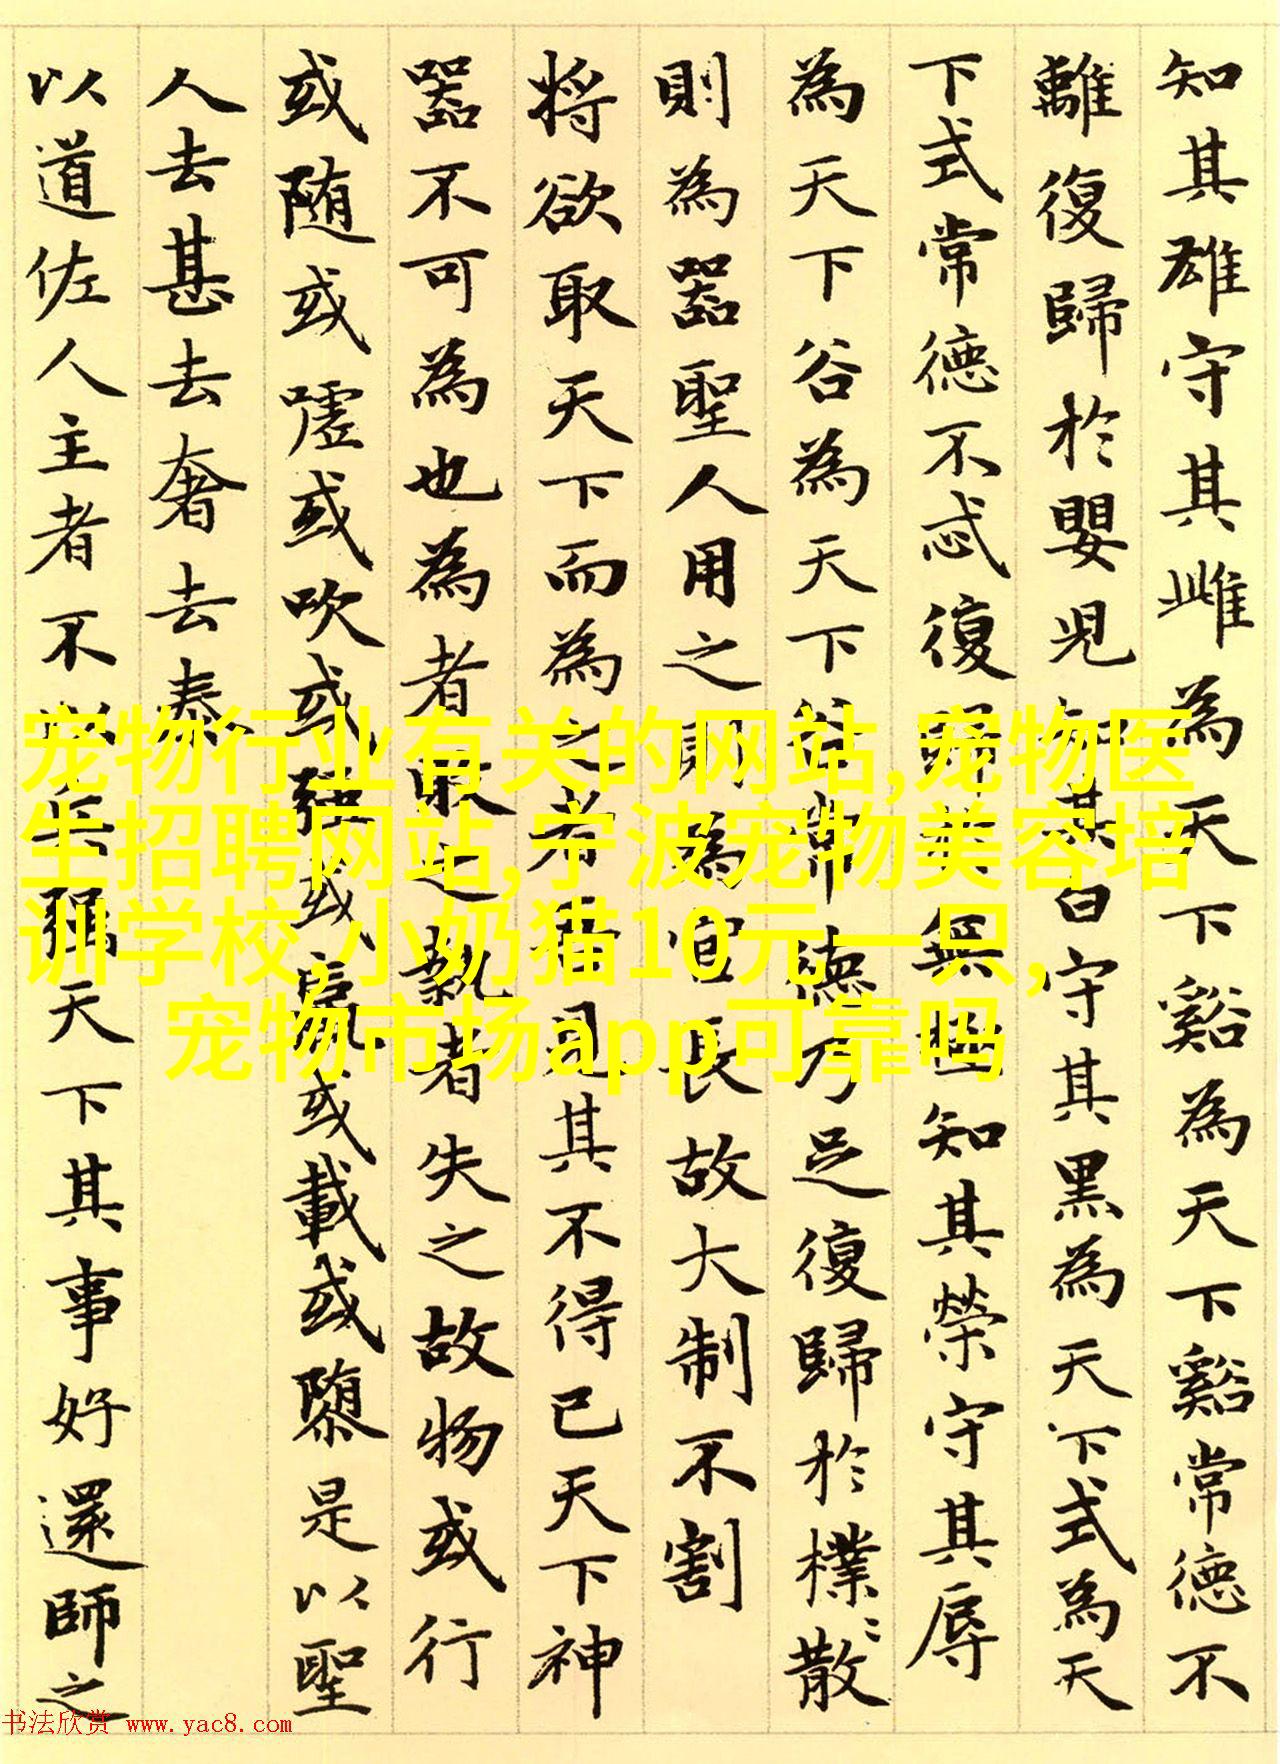 知其雄守其雌為天下谿為天下谿常德不
離復歸於嬰兒知其白守其黑為天下式為天
下式常德不忒復歸於無極知其榮守其辱
為天下谷為天下谷常德乃足復歸於樸〻散
則為器聖人用之則為官長故大制不割
将欲取天下而為之者吾見其不得已天下神
器不可為也為者敗之執者失之故物或行
或随或嘘或吹或强或羸或載或隳是以聖
人去甚去奢去泰
以道佐人主者不以兵強天下其事好還師之
宠物行业有关的网站,宠物医
生招聘网站,宁波宠物美容培
训学校,小奶猫10元一只,
宠物市场app可靠吗
书法欣赏 www.yac8.com